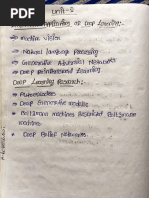 Unit-5
Applications of Deep Learning:-
→ Machine Vision
→ Natural language Processing
→ Generative Adversial Networks
→ Deep Reinforcement Learning
Deep Learning Research:-
• Autoencoders
• Deep Generative models
• Boltzmann Machines Restricted Boltzmann
machines
• Deep Belief Networks